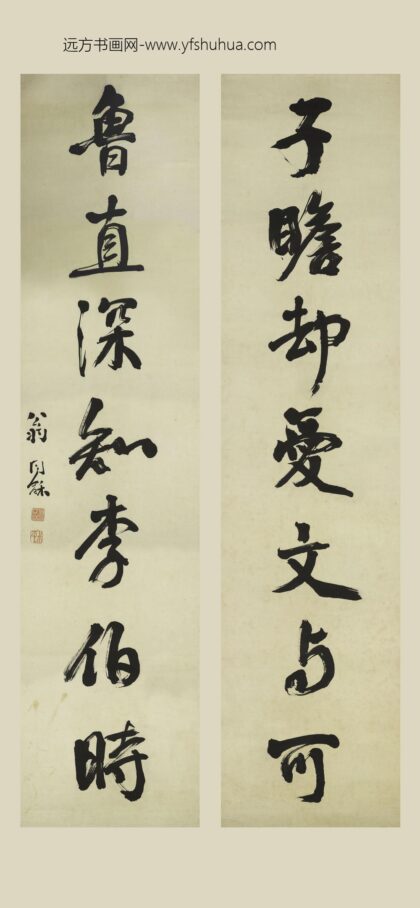 远方书画网-www.yfshuhua.com
子瞻却愛文与可
魯直深知李伯時
翁同龢